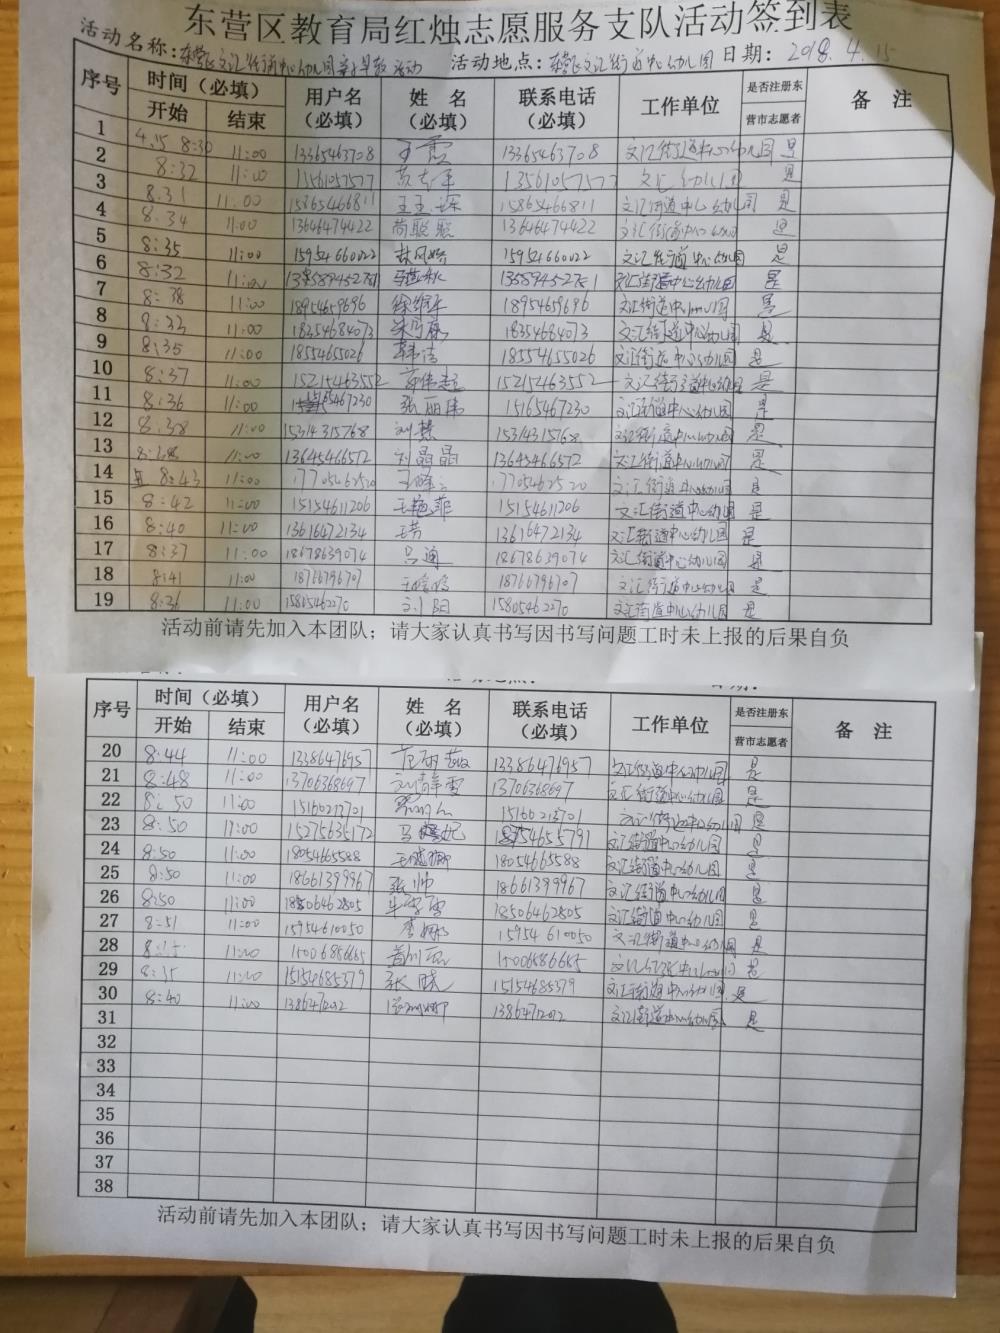 东营区教育局红烛志愿服务支队活动签到表
活动名称：东营区文汇街道中心幼儿园亲子早教活动 活动地点：东营区文汇街道中心幼儿园 日期：2018.4.15
序号 时间（必填） 用户名（必填） 姓名（必填） 联系电话（必填） 工作单位 是否注册东营市志愿者 备注
开始 结束
1 4.15 8:30 11:00 13365463708 王霞 13365463708 文汇街道中心幼儿园 是
2 8:32 11:00 13561057577 文汇幼儿园 是
3 8:31 11:00 15865466811 15865466811 文汇街道中心幼儿园 是
4 8:34 11:00 13646474422 尚聪聪 13646474422 文汇街道中心幼儿园 是
5 8:35 11:00 15954660022 15954660022 文汇街道中心幼儿园 是
6 8:32 11:00 文汇街道中心幼儿园 是
7 8:38 11:00 18954659696 18954659696 文汇街道中心幼儿园 是
8 8:33 11:00 18354684073 18354684073 文汇街道中心幼儿园 是
9 8:35 11:00 18554655026 韩洁 18554655026 文汇街道中心幼儿园 是
10 8:37 11:00 15215463552 15215463552 文汇街道中心幼儿园 是
11 8:36 11:00 张丽伟 15165467230 文汇街道中心幼儿园 是
12 8:38 11:00 15314315768 刘慧 15314315768 文汇街道中心幼儿园 是
13 11:00 13645466572 刘晶晶 13645466572 文汇街道中心幼儿园 是
14 8:43 11:00 17705462520 17705462520 文汇街道中心幼儿园 是
15 8:42 11:00 15154611206 王艳菲 15154611206 文汇街道中心幼儿园 是
16 8:40 11:00 13616472134 王芳 13616472134 文汇街道中心幼儿园 是
17 8:37 11:00 18678639074 吕迪 18678639074 文汇街道中心幼儿园 是
18 8:41 11:00 18766796707 王晓晓 18766796707 文汇街道中心幼儿园 是
19 8:36 11:00 15805462270 刘阳 15805462270 文汇街道中心幼儿园 是
活动前请先加入本团队；请大家认真书写因书写问题工时未上报的后果自负
序号 时间（必填） 用户名（必填） 姓名（必填） 联系电话（必填） 工作单位 是否注册东营市志愿者 备注
开始 结束
20 8:44 11:00 13386476957 13386476957 文汇街道中心幼儿园 是
21 8:48 11:00 13706368697 刘静雪 13706368697 文汇街道中心幼儿园 是
22 8:50 11:00 15160213701 15160213701 文汇街道中心幼儿园 是
23 8:50 11:00 15275635172 文汇街道中心幼儿园 是
24 8:50 11:00 18054665588 18054665588 文汇街道中心幼儿园 是
25 8:50 11:00 18661399967 张帅 18661399967 文汇街道中心幼儿园 是
26 8:50 11:00 18506462805 18506462805 文汇街道中心幼儿园 是
27 8:51 11:00 15954610050 李娜 15954610050 文汇街道中心幼儿园 是
28 11:00 15006886685 文汇街道中心幼儿园 是
29 8:35 11:00 张晓 15154685379 文汇街道中心幼儿园 是
30 8:40 11:00 文汇街道中心幼儿园 是
31
32
33
34
35
36
37
38
活动前请先加入本团队；请大家认真书写因书写问题工时未上报的后果自负